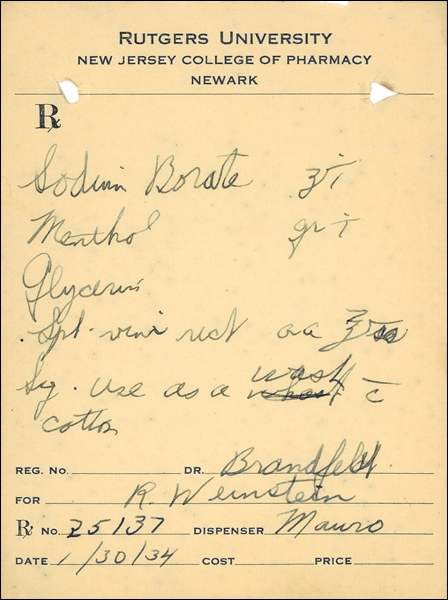 RUTGERS UNIVERSITY
NEW JERSEY COLLEGE OF PHARMACY
NEWARK
℞
Sodium Borate ʒ i
Menthol gr i
Glycerin
Spt. vini rect aa ʒ ss
Sig. Use as a wash c̄
cotton
REG. NO. DR. Brandfeld
FOR R Weinstein
℞ NO. 25137 DISPENSER Mauro
DATE 1/30/34 COST PRICE